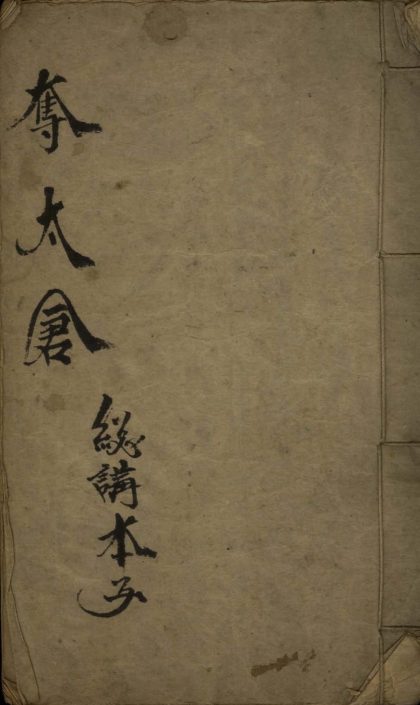 奪太倉
總講本子